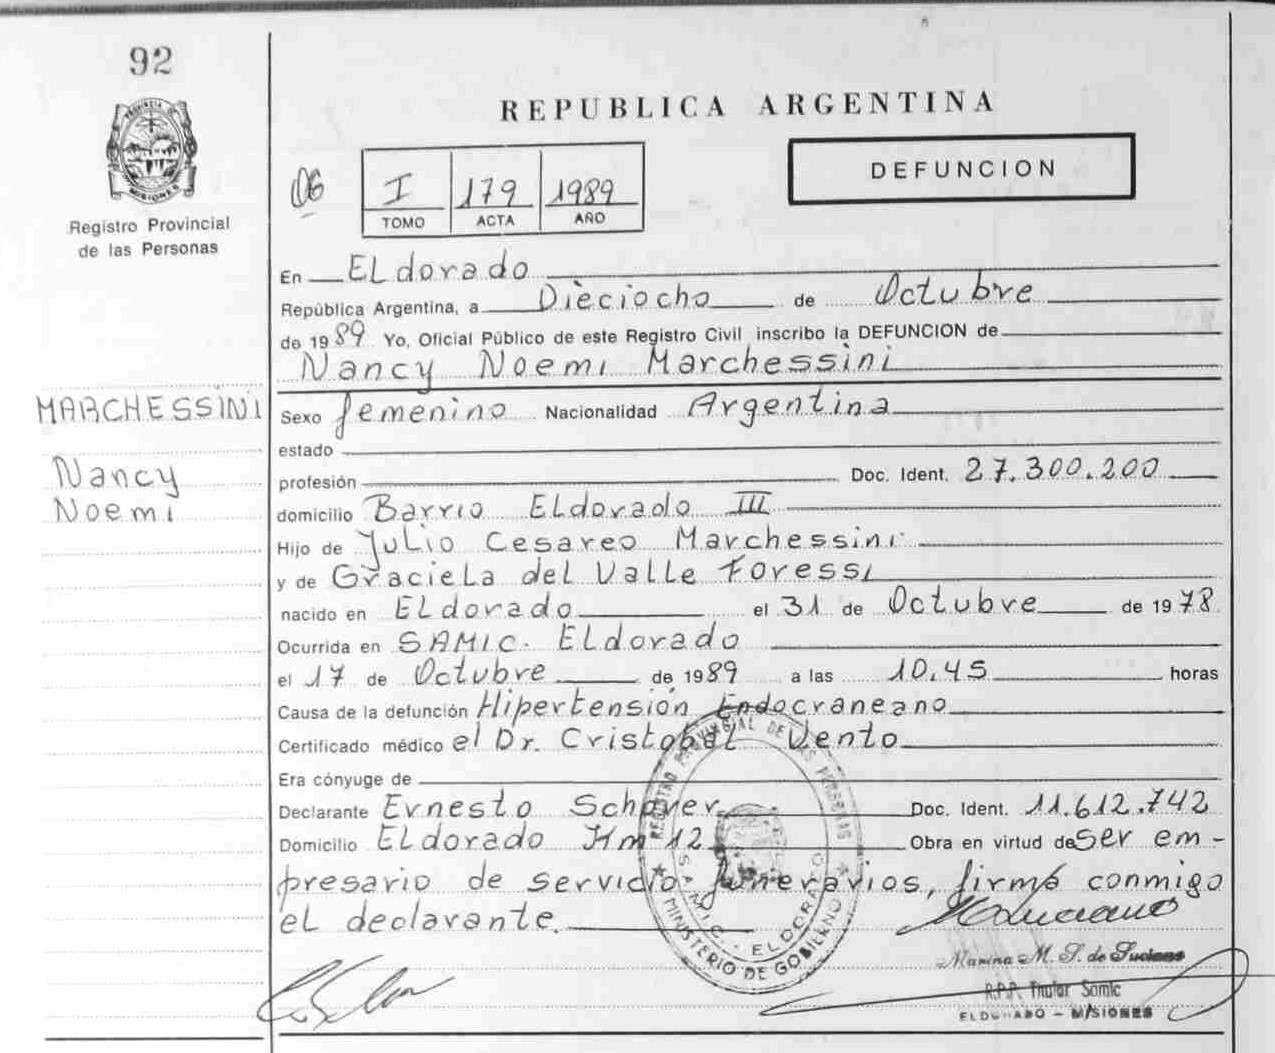 92
PROVINCIA DE
MISIONES
Registro Provincial
de las Personas
REPUBLICA ARGENTINA
DEFUNCION
06
I 179 1989
TOMO ACTA AÑO
En ELdorado
República Argentina, a Dieciocho de Octubre
de 1989 Yo, Oficial Público de este Registro Civil inscribo la DEFUNCION de
Nancy Noemi Marchessini
MARCHESSINI
Nancy
Noemi
Sexo femenino Nacionalidad Argentina
estado
profesión Doc. Ident. 27.300.200
domicilio Barrio ELdorado III
Hijo de Julio Cesareo Marchessini
y de Graciela del Valle Foressi
nacido en ELdorado el 31 de Octubre de 1978
Ocurrida en SAMIC. ELdorado
el 17 de Octubre de 1989 a las 10.45 horas
Causa de la defunción Hipertensión Endocraneano
Certificado médico el Dr. Cristobal Vento
Era cónyuge de
Declarante Ernesto Schaver Doc. Ident. 11.612.742
Domicilio ELdorado Km 12 Obra en virtud de ser em-
presario de servicio funerarios, firma conmigo
el declarante.
REGISTRO PROVINCIAL DE LAS PERSONAS
MINISTERIO DE GOBIERNO
SAMIC - ELDORADO
Marina M. S. de Luciano
R.P.P. Titular Samic
ELDORADO - MISIONES